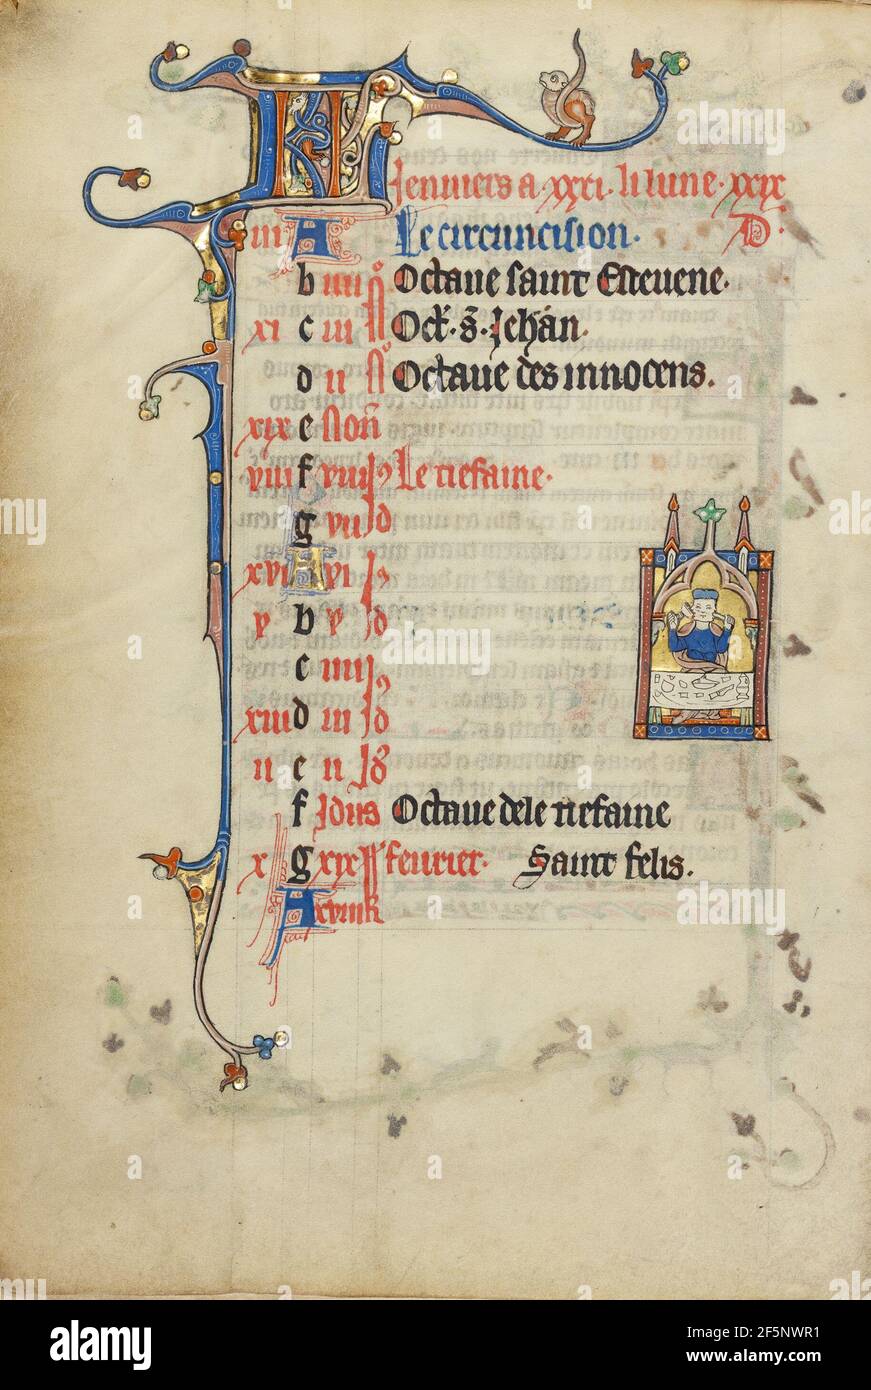 KL
Jenuiers a .xxxi. li lune .xxix
iii A Le circuncision. D.
b iiii Nõ Octaue saint Esteuene.
xi c iii N Oct. S. Jehan.
d ii Nõ Octaue des innocens.
xix e Non
viii f viii Id Le tiefaine.
g vii Id
xvi A vi Id
v b v Id
c iiii Id
xiii d iii Id
ii e ii Id
f Idus Octaue dele tiefaine
x g xix feurier. Saint felis.
A xviii k
alamy
Image ID: 2F5NWR1
www.alamy.com